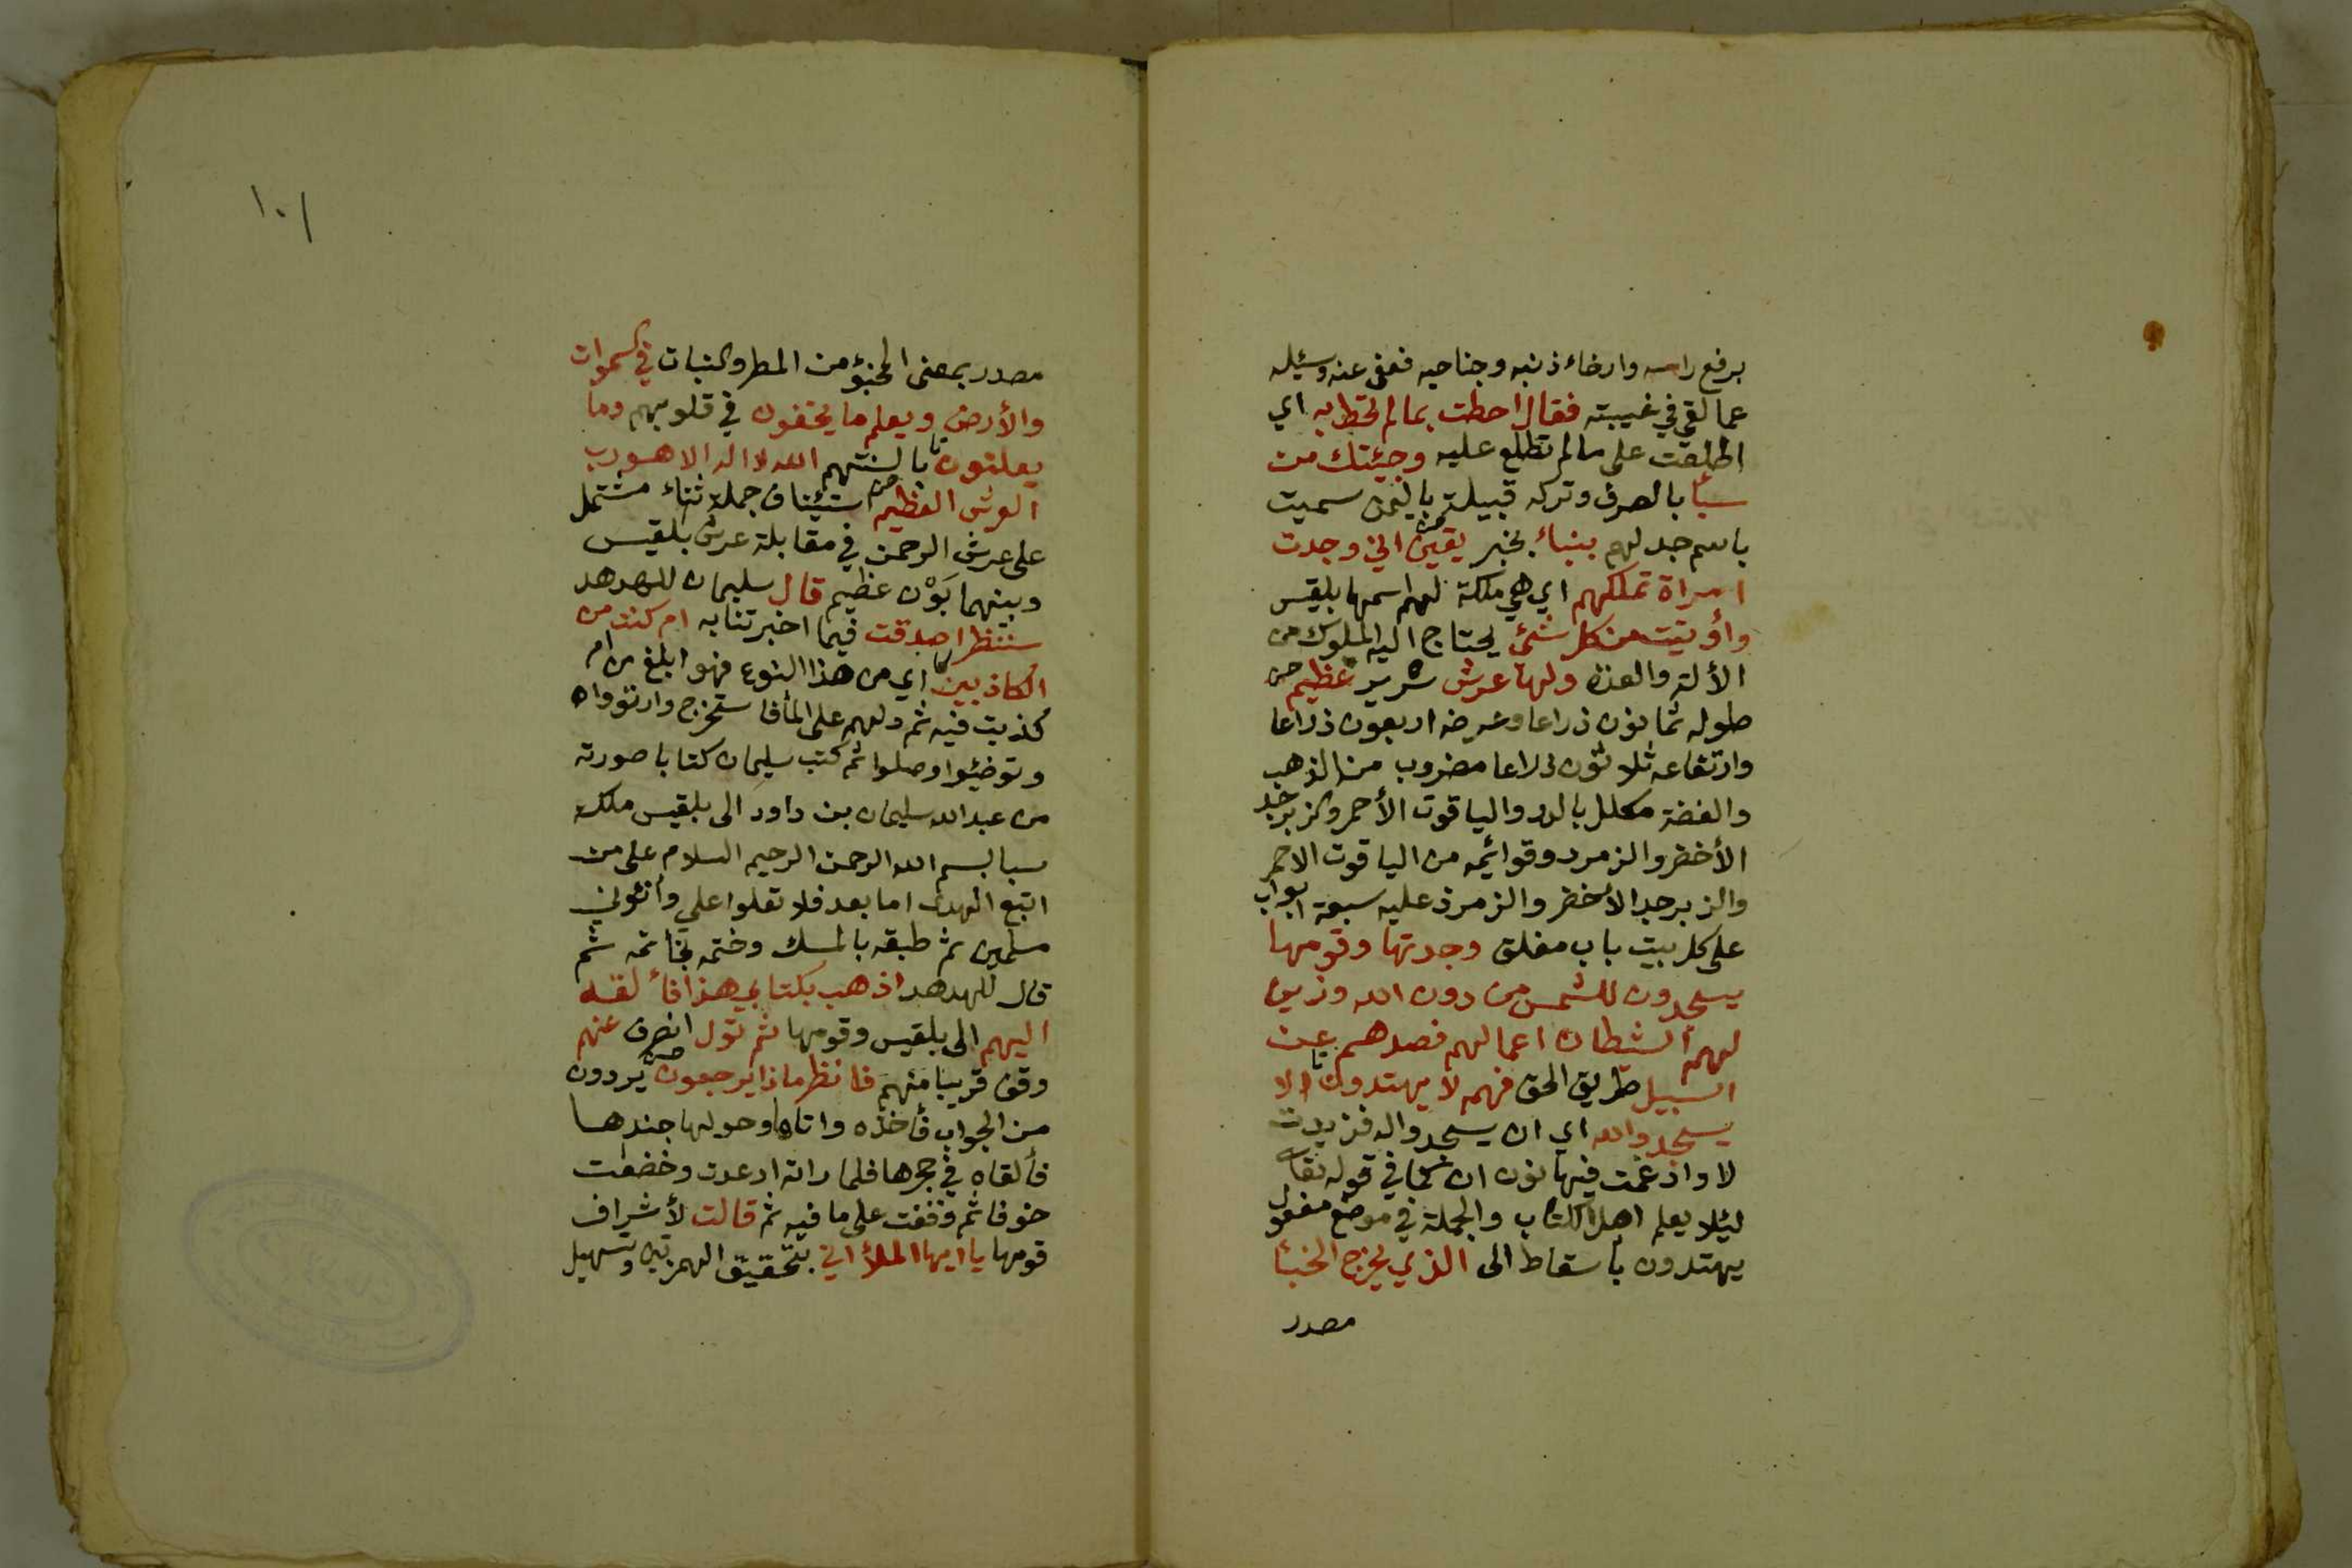 برفع راسه وارخاء ذنبه وجناحيه فعفى عنه وسئله
عما لقي في غيبته فقال احطت بما لم تحط به اي
اطلعت على ما لم تطلع عليه وجئتك من
سبأ بالصرف وتركه قبيلة باليمن سميت
باسم جد لهم بنباء بخبر يقين اني وجدت
امراة تملكهم اي هي ملكة لهم اسمها بلقيس
وأوتيت من كل شئ يحتاج اليه الملوك من
الألة والعدة ولها عرش سرير عظيم
طوله ثمانون ذراعا وعرضه اربعون ذراعا
وارتفاعه ثلاثون ذراعا مضروب من الذهب
والفضة مكلل بالدر والياقوت الأحمر والزبرجد
الأخضر والزمرد وقوائمه من الياقوت الاحمر
والزبرجد الأخضر والزمرذ عليه سبعة ابواب
على كل بيت باب مغلق وجدتها وقومها
يسجدون للشمس من دون الله وزين
لهم الشطان اعمالهم فصدهم عن
السبيل طريق الحق فهم لا يهتدون الا
يسجدوالله اي ان يسجدواله فزيدت
لا وادغمت فيها نون ان كما في قوله تعالى
ليئلا يعلم اهل الكتاب والجملة في موضع مفعول
يهتدون بأسقاط الى الذي يخرج الخبئا
مصدر
١٠١
مصدر بمعنى المخبؤ من المطر والنبات في السموات
والأرض ويعلم ما يخفون في قلوبهم وما
يعلنون بالسنتهم الله لا اله الا هو رب
العرش العظيم استيئناف جملة ثناء مشتمل
على عرش الرحمن في مقابلة عرش بلقيس
وبينهما بَوْن عظيم قال سليمان للهدهد
سننظر اصدقت فيما اخبرتنا به ام كنت من
الكاذبين اي من هذا النوع فهو ابلغ من ام
كذبت فيه ثم دلهم على الماء فا ستخرج وارتووا
وتوضئوا وصلوا ثم كتب سليمان كتابا صورته
من عبد الله سليمان بن داود الى بلقيس ملكة
سبا بسم الله الرحمن الرحيم السلام على من
اتبع الهدى اما بعد فلا تعلوا علي وأتوني
مسلمين ثم طبقه بالمسك وختمه بخاتمه ثم
قال للهدهد اذهب بكتابي هذا فألقه
اليهم الى بلقيس وقومها ثم تول انصرف عنهم
وقف قريبا منهم فانظر ماذا يرجعون يردون
من الجواب فأخذه واتاها وحولها جندها
فألقاه في حجرها فلما راته ارعدت وخضعت
خوفا ثم وقفت على ما فيه ثم قالت لأشراف
قومها يا ايها الملأ اني بتحقيق الهمزتين وتسهيل